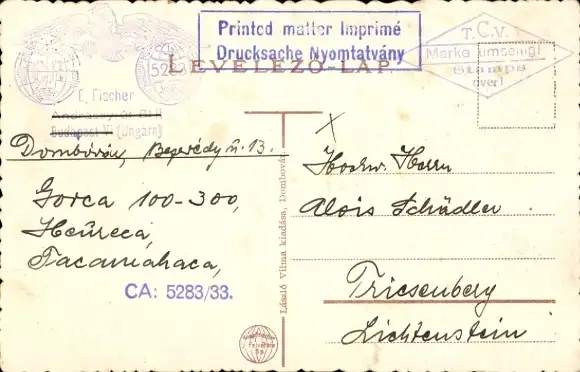 Printed matter Imprimé
Drucksache Nyomtatvány
T.C.V.
Marke umseitig!
Stamps
over!
5282
LEVELEZŐ-LAP
E. Fischer
Andrassy út
Budapest VI (Ungarn)
Dombóvár, Bezerédy u. 13.
Gorca 100-300,
Heüreca,
Tacamahaca,
CA: 5283/33.
László Vilma kiadása, Dombóvár
Hochw. Herrn
Alois Schädler
Triesenberg
Lichtenstein